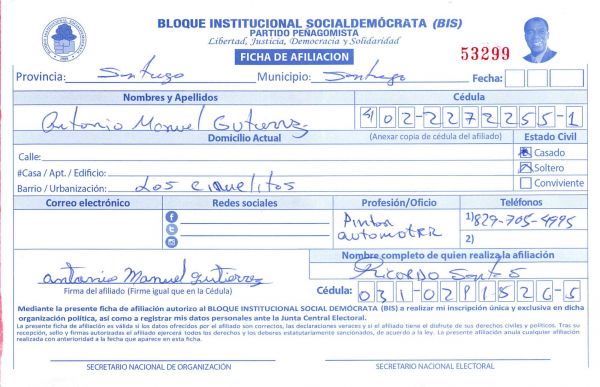 BLOQUE INSTITUCIONAL SOCIALDEMÓCRATA (BIS)
PARTIDO PEÑAGOMISTA
Libertad, Justicia, Democracia y Solidaridad
FICHA DE AFILIACION
53299
Provincia: Santiago Municipio: Santiago Fecha:
Nombres y Apellidos Cédula
Antonio Manuel Gutierrez 402-2272255-1
Domicilio Actual (Anexar copia de cédula del afiliado) Estado Civil
Calle: Casado
#Casa / Apt. / Edificio: Soltero
Barrio / Urbanización: Los ciruelitos Conviviente
Correo electrónico Redes sociales Profesión/Oficio Teléfonos
Pintor automotriz 1) 829-705-4995
2)
Nombre completo de quien realiza la afiliación
antonio Manuel gutierrez Ricardo Santos
Firma del afiliado (Firme igual que en la Cédula) Cédula: 031-02 1526-5
Mediante la presente ficha de afiliación autorizo al BLOQUE INSTITUCIONAL SOCIAL DEMÓCRATA (BIS) a realizar mi inscripción única y exclusiva en dicha
organización política, así como a registrar mis datos personales ante la Junta Central Electoral.
La presente ficha de afiliación es válida si los datos ofrecidos por el afiliado son correctos, las declaraciones veraces y si el afiliado tiene el disfrute de sus derechos civiles y políticos. Tras su
recepción, sello y firmas autorizadas el afiliado ejercerá todos los derechos y los deberes estatutariamente sancionados, de acuerdo a la ley. La presente afiliación anula cualquier afiliación
realizada con anterioridad a la fecha que aparece en esta ficha.
SECRETARIO NACIONAL DE ORGANIZACIÓN SECRETARIO NACIONAL ELECTORAL